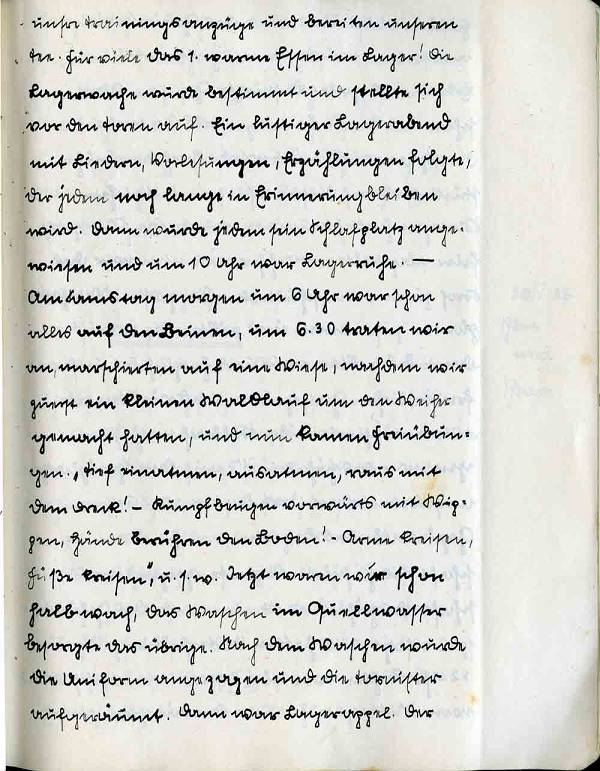 unsre trainingsanzüge und bereiten unseren
tee. Für viele das 1. warme Essen im Lager! Die
Lagerwache wurde bestimmt und stellte sich
vor den Toren auf. Ein lustiger Lagerabend
mit Liedern, Vorlesungen, Erzählungen folgte,
der jedem noch lange in Erinnerung bleiben
wird. Dann wurde jedem sein Schlafplatz ange-
wiesen und um 10 Uhr war Lagerruhe. —
Am Samstag morgen um 6 Uhr war schon
alles auf den Beinen, um 6.30 traten wir
an, marschierten auf eine Wiese, nachdem wir
zuerst ein kleinen Waldlauf um den Weiher
gemacht hatten, und nun kamen Freiübun-
gen. „Tief einatmen, ausatmen, raus mit
dem Dreck! – Rumpfbeugen vorwärts mit Wip-
pen, Hände berühren den Boden! – Arme kreisen,
Füße kreisen", u. s. w. Jetzt waren wir schon
halbwach, das Waschen im Quellwasser
besorgte das übrige. Nach dem Waschen wurde
die Uniform angezogen und die Tornister
aufgeräumt. Dann war Lagerappel. Der